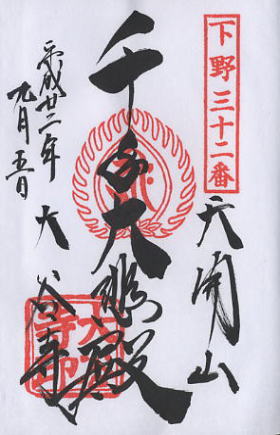 下野三十二番
天開山
千手大悲殿
大谷寺
平成廿二年
九月五日